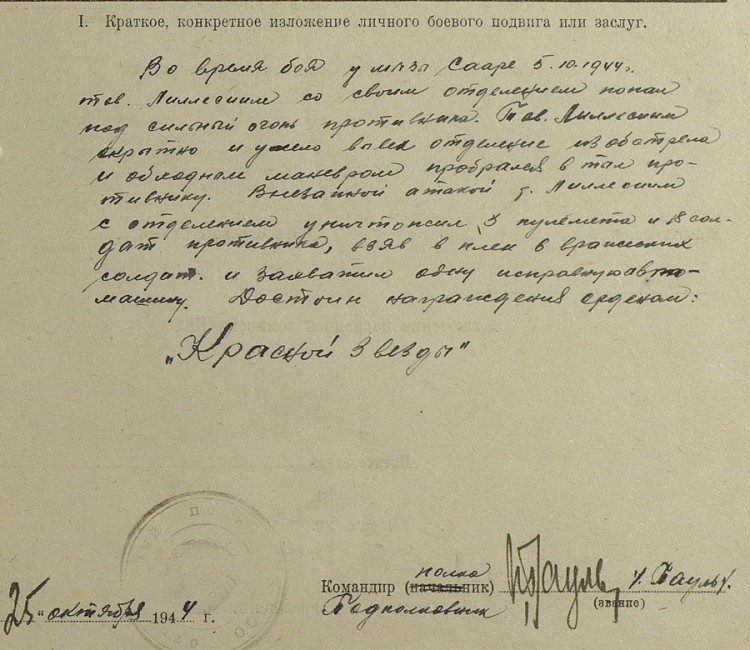 I. Краткое, конкретное изложение личного боевого подвига или заслуг.
Во время боя у мызы Сааре 5.10.1944г.
тов. Лиллесиим со своим отделением попал
под сильный огонь противника. Тов. Лиллесиим
скрытно и умело вывел отделение из обстрела
и обходным маневром пробрался в тыл про-
тивнику. Внезапной атакой т. Лиллесиим
с отделением уничтожил 3 пулемета и 18 сол-
дат противника, взяв в плен вражеских
солдат. и захватил одну исправную авто-
машину. Достоин награждения орденом:
„Красной Звезды"
полка
Командир (начальник)
Подполковник
(звание)
25 "октября 1944 г.